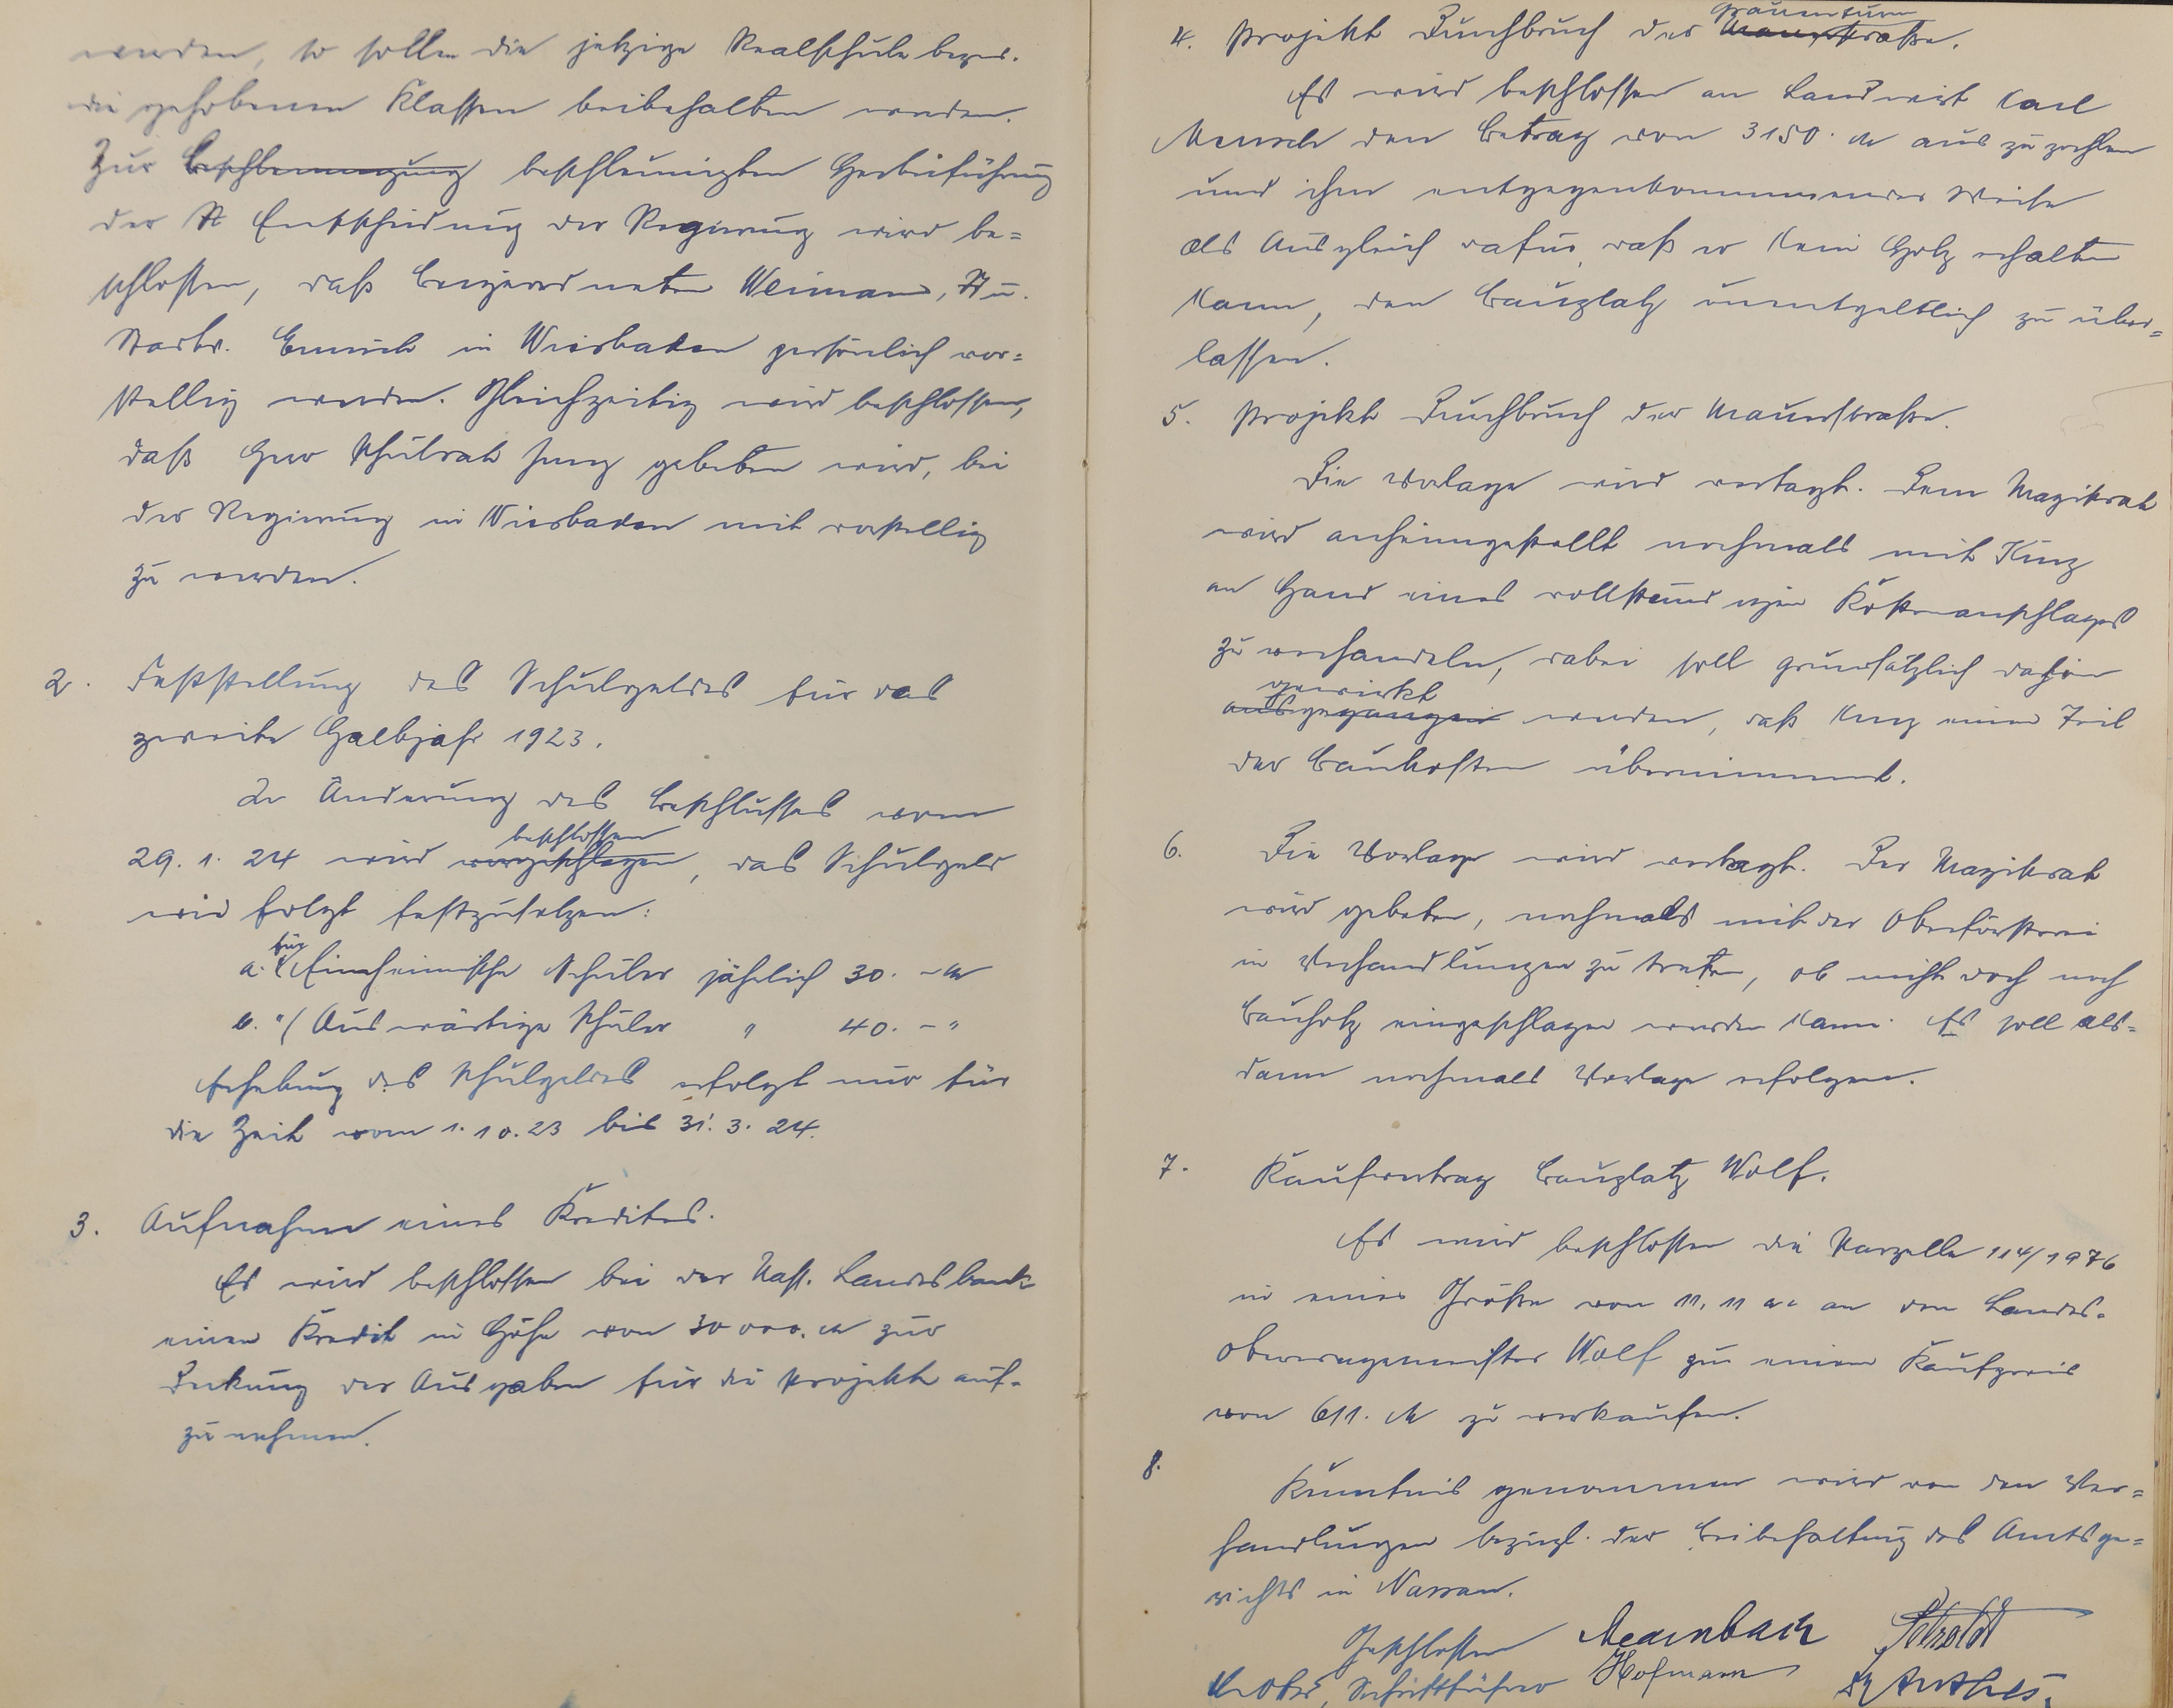 werden, so sollen die jetzige Realschule bezw.
die gehobenen Klassen beibehalten werden.
Zur Beschleunigung beschleunigten Herbeiführung
der St Entscheidung der Regierung wird be=
schlossen, daß Beigeordneter Weimar, St u.
Stadtv. in Wiesbaden persönlich vor=
stellig werden. Gleichzeitig wird beschlossen,
daß Herr Schulrat Jung gebeten wird, bei
der Regierung in Wiesbaden mit vorstellig
zu werden.
2. Feststellung des Schulgeldes für das
zweite Halbjahr 1923.
In Änderung des Beschlusses vom
beschlossen
29. 1. 24 wird vorgeschlagen, das Schulgeld
wie folgt festzusetzen:
für
a. ( Einheimische Schüler jährlich 30. - M
b. " ( Auswärtige Schüler " 40. - "
Erhebung des Schulgeldes erfolgt nur für
die Zeit vom 1. 10. 23 bis 31. 3. 24.
3. Aufnahme eines Kredites.
Es wird beschlossen bei der Nass. Landesbank
einen Kredit in Höhe von 30 000. M zur
Deckung der Ausgaben für die Projekte auf-
zunehmen.
Grauenturm
4. Projekt Durchbruch der Mauerstraße.
Es wird beschlossen an Landwirt Karl
den Betrag von 3150. M aus zu zahlen
und ihm entgegenkommender Weise
als Ausgleich dafür, daß er kein Holz erhalten
kann, den Bauplatz unentgeltlich zu über=
lassen.
5. Projekt Durchbruch der Mauerstraße.
Die Vorlage wird vertagt. Dem Magistrat
wird anheimgestellt nochmals mit Kunz
an Hand eines vollständigen Kostenanschlages
zu verhandeln, dabei soll grundsätzlich dahin
gewirkt
ausgegangen werden, daß Kunz einen Teil
der Baukosten übernimmt.
6. Die Vorlage wird vertagt. Der Magistrat
wird gebeten, nochmals mit der Oberförsterei
in Verhandlungen zu treten, ob nicht doch noch
Bauholz eingeschlagen werden kann. Es soll als=
dann nochmals Vorlage erfolgen.
7. Kaufvertrag Bauplatz Wolf.
Es wird beschlossen die Parzelle 114/1976
in einer Größe von 11,11 ar an den Landes-
oberwegemeister Wolf zu einem Kaufpreis
von 611. M zu verkaufen.
8. Kenntnis genommen wird von den Ver=
handlungen bezügl. der Beibehaltung des Amtsge=
richts in Nassau.
Geschlossen
Schriftführer Hofmann Anthes.